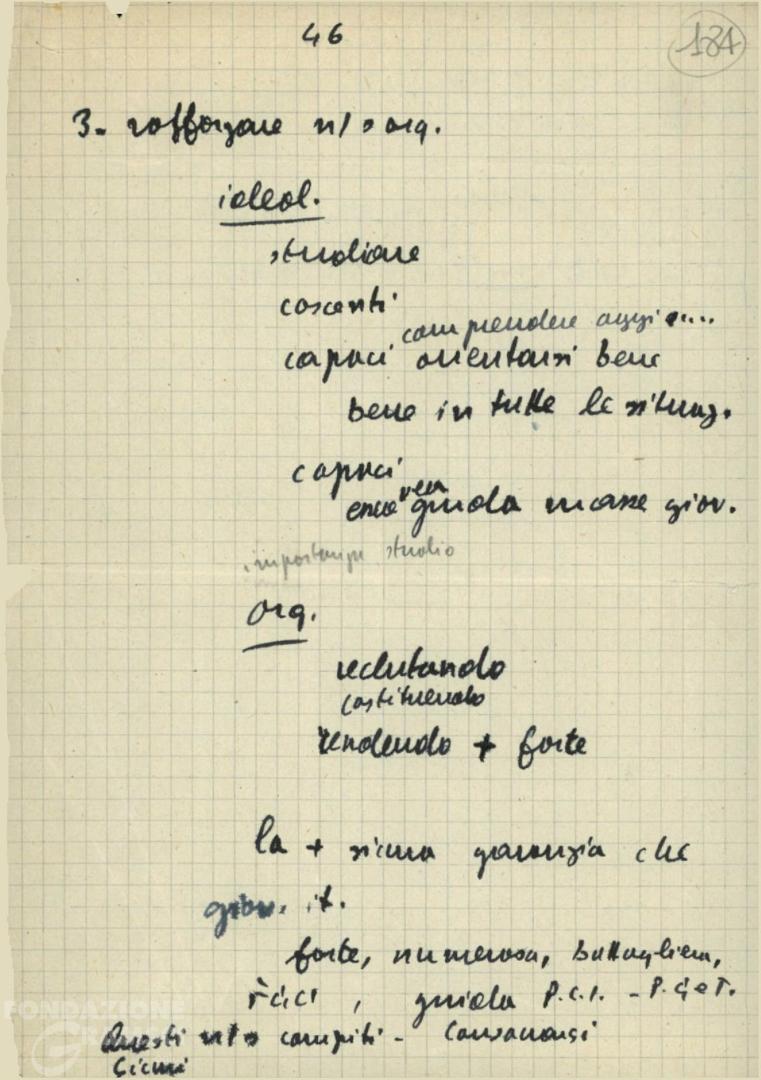 46
184
3- rafforzare n/s org.
ideol.
studiare
coscenti
comprendere oggi....
capaci orientarsi bene
bene in tutte le situaz.
capaci
vera
guida masse giov.
importanza studio
org.
reclutando
costituendo
rendendo + forte
la + sicura garanzia che
giov. it.
forte, numerosa, battagliera,
guida P.C.I. - P. e T.
FONDAZIONE
Questi n/s compiti -
Sicuri